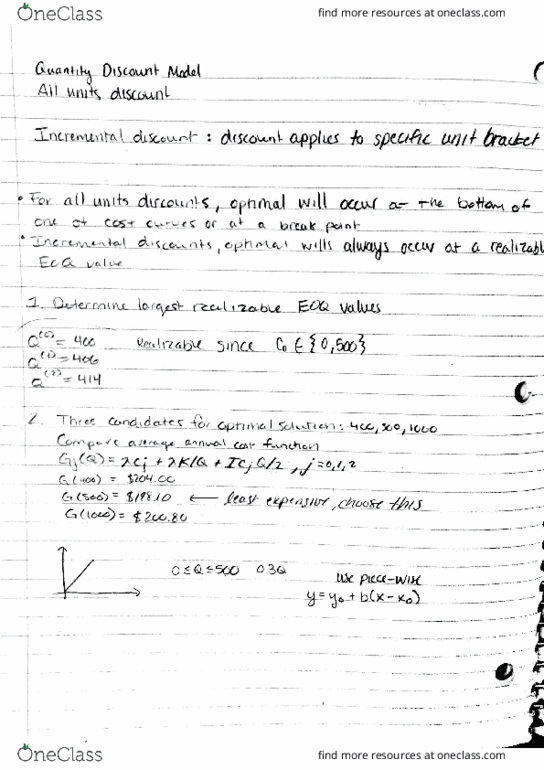 OneClass
find more resources at oneclass.com
Quantity Discount Model
All units discount
Incremental discount : discount applies to specific unit bracket
• For all units discounts, optimal will occur at the bottom of
one of cost curves or at a break point
• Incremental discounts, optimal wills always occur at a realizabl
EOQ value
1. Determine largest realizable EOQ values
Q⁽⁰⁾ = 400 Realizable since C₀ ∈ {0,500}
Q⁽¹⁾ = 406
Q⁽²⁾ = 414
2. Three candidates for optimal solution: 400, 500, 1000
Compare average annual cost function
Gj(Q) = λCj + λK/Q + ICjQ/2, j = 0,1,2
G(400) = $204.00
G(500) = $198.10 ← least expensive, choose this
G(1000) = $200.80
0 ≤ Q ≤ 500 0.3Q
use piece-wise
y = y₀ + b(x - x₀)
OneClass
find more resources at oneclass.com